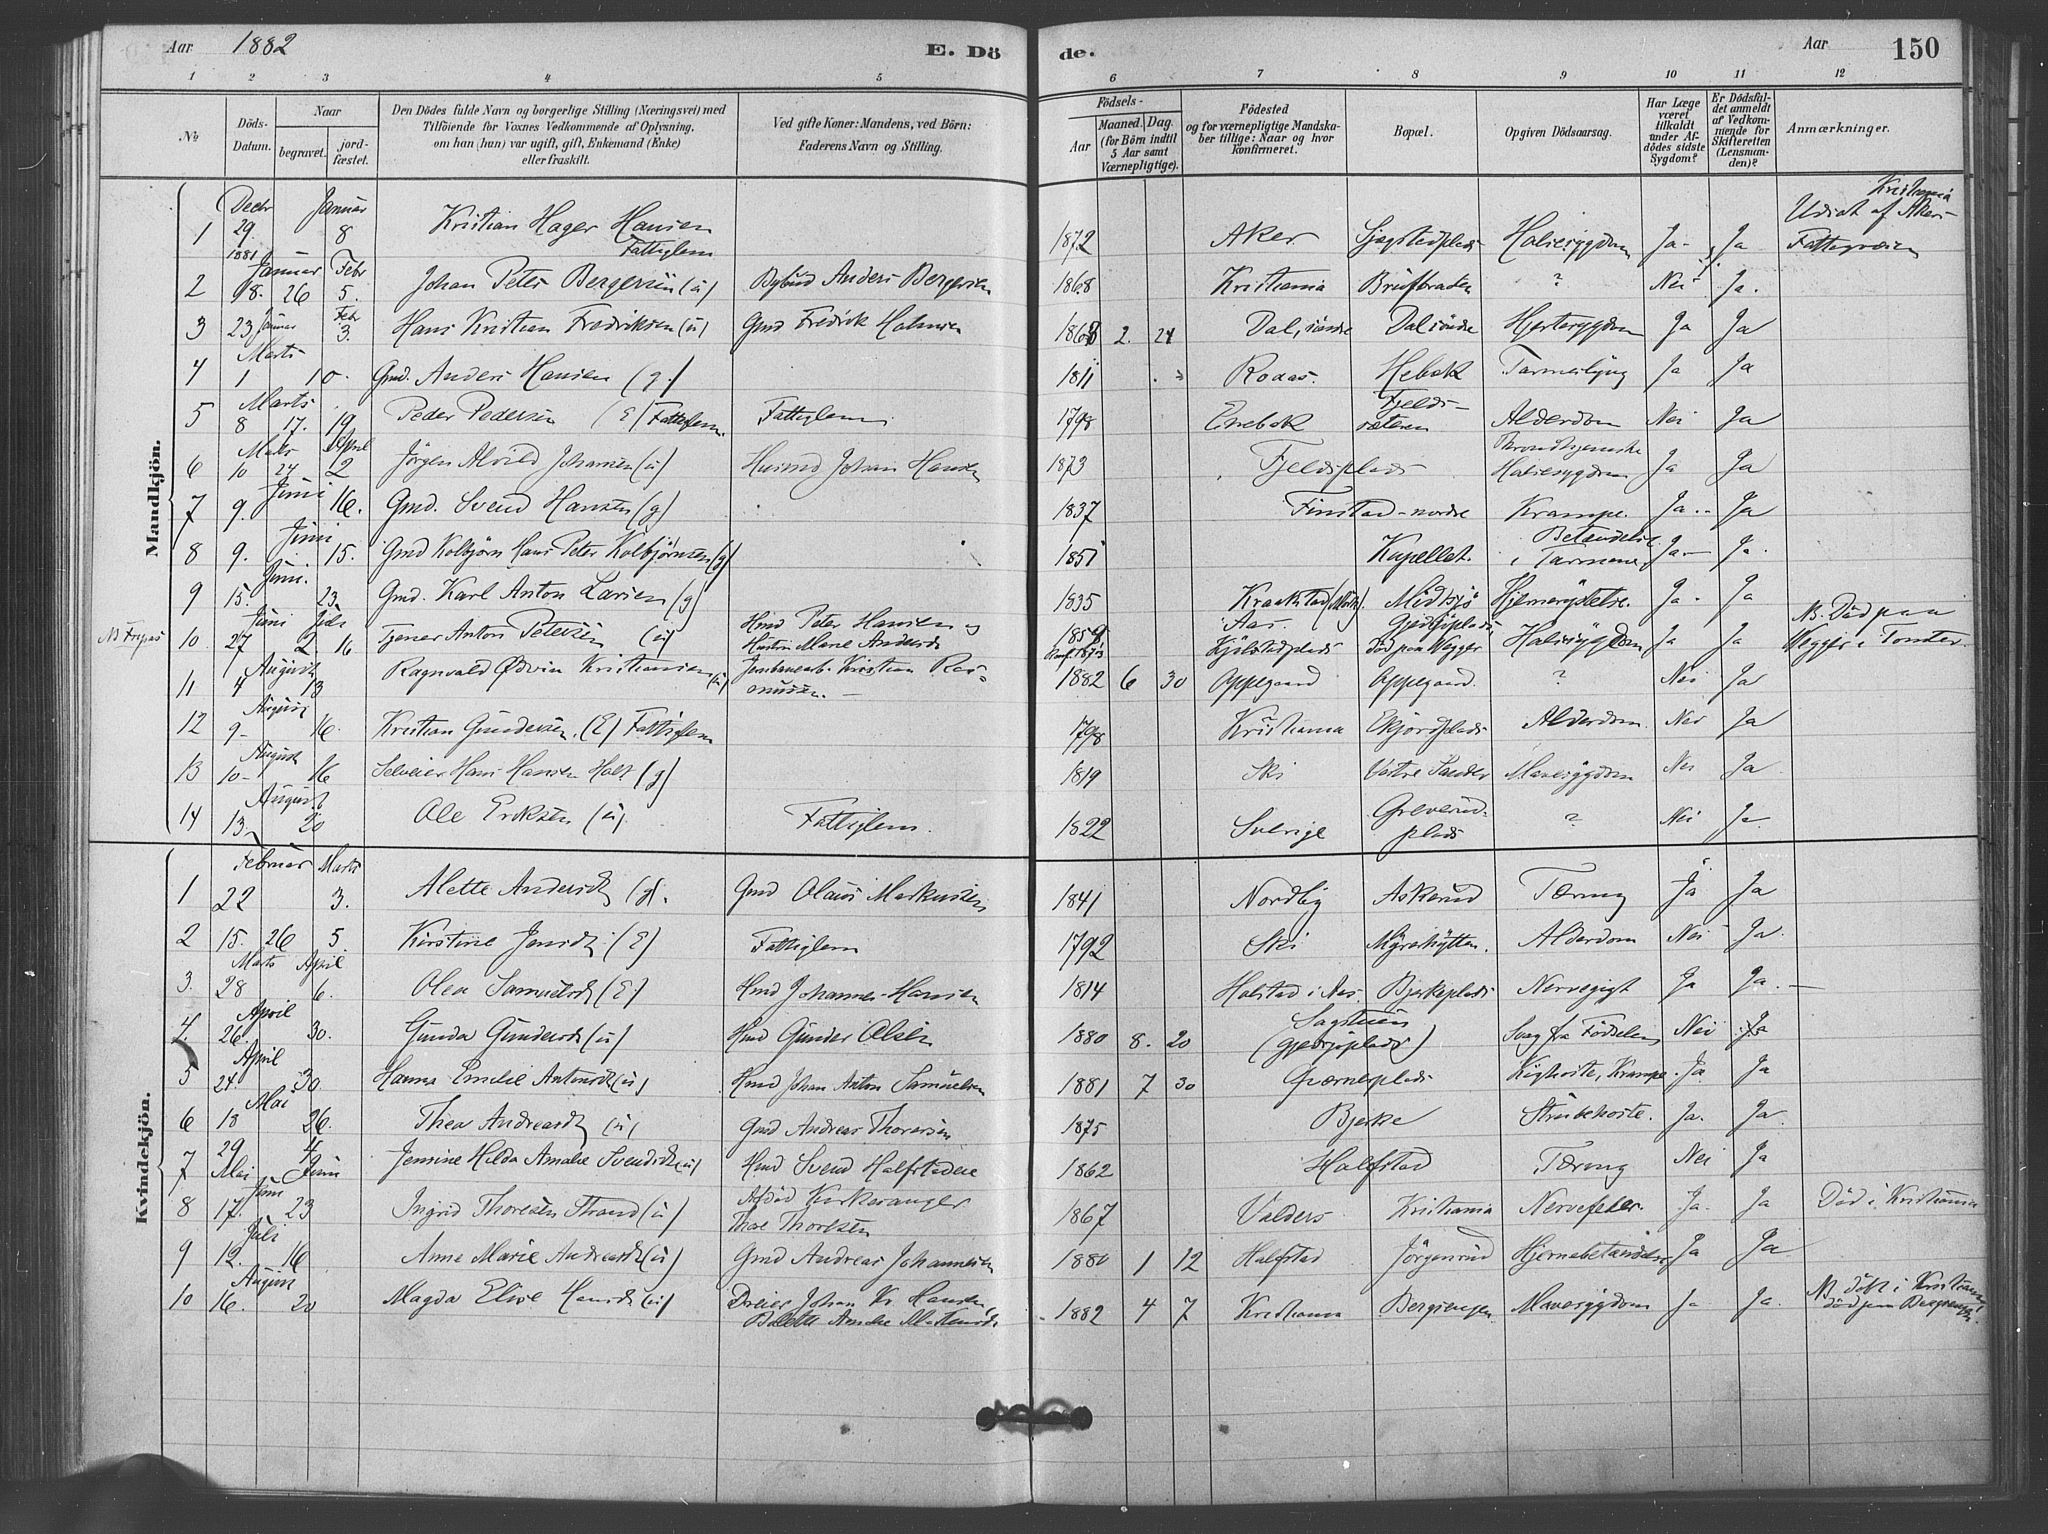 Aar 1882 E. Döde. Aar 150
1 2 3 4 5 6 7 8 9 10 11 12
№ Döds-Datum. Naar begravet. jordfæstet. Den Dödes fulde Navn og borgerlige Stilling (Næringsvei) med Tilföiende for Voxnes Vedkommende af Oplysning, om han (hun) var ugift, gift, Enkemand (Enke) eller fraskilt. Ved gifte Koner: Mandens, ved Börn: Faderens Navn og Stilling. Födsels- Aar Maaned. Dag. (for Börn indtil 5 Aar samt Værnepligtige). Födested og for værnepligtige Mandskaber tillige: Naar og hvor konfirmeret. Bopæl. Opgiven Dödsaarsag. Har Læge været tilkaldt under Afdödes sidste Sygdom? Er Dödsfaldet anmeldt af Vedkommende for Skifteretten (Lensmanden)? Anmærkninger.
Mandkjön.
1 Decbr 29. 1881 Januar 8 Kristian Hager Hansen Fattiglem 1872 Aker Halssygdom Ja Ja Kristiania Udsat af Akers Fattigvæsen
2 Januar 18. 26 Febr 5. Johan Peter Bergersen (u) Anders Bergersen 1868 Kristiania ? Nei Ja.
3 23 Januar Febr 3. Hans Kristian Fredriksen (u) Gmd Fredrik Holmsen 1868 2. 24 Dal, söndre Dal söndre Hjertesygdom Ja Ja
4 Marts 1 10. Gmd. Anders Hansen (g.) 1811 Hebæk Ja Ja
5 Marts 8 17. 19 Peder Pedersen (E) Fattiglem Fattiglem 1798 Enebak Fjeldsæteren Alderdom Nei Ja
6 Marts 10 24 April 2 Jörgen Johansen (u) Husmd Johan Hansen 1873 Fjeldsplads Throndhjemske Halssygdom Ja Ja
7 Juni 9. 16. Gmd. Svend Hansen (g) 1837 Finstad nordre Krampe. Ja Ja
8 Juni 9. 15. Gmd Kolbjörn Hans Peter Kolbjörnsen (g) 1851 Kapellet. Betændelse i Tarmene Ja Ja.
9 Juni. 15. 23 Gmd. Karl Anton Larsen (g) 1835 Kraakstad Midsjö Hjernerystelse. Ja Ja
NB Frogns 10. Juni 27 Juli 2 16 Tjener Anton Petersen (u) Hmd Peter Hansen og Hustru Marie Andersd. 1859 Aas. Kjölstadplads Gjedsjöplads, död paa Vegger Halssygdom Ja Ja NB. Död paa Vegger i
11 August 4 13 Ragnvald Ødvin Kristiansen (u) Jernbanearb. Kristian Rasmussen. 1882 6 30 Oppegaard Oppegaard. ? Nei Ja
12 August 9 16. Kristian Gundersen. (E) Fattiglem 1798 Kristiania Ekjordplads Alderdom Nei Ja
13 August 10 16 Selveier Hans Hansen Holt (g) 1819 Ski Vestre Sander Mavesygdom Nei Ja
14 August 13. 20 Ole Eriksen (u). Fattiglem. 1822 Sverige Greverudplads ? Nei Ja
Kvindekjön.
1 Februar 22 Marts 3. Alette Andersd (g). Gmd Olaus Markussen 1841 Nordby Askerud Tæring Ja Ja
2 15. 26 5. Kirstine Jensd. (E) Fattiglem 1792 Ski Myrehytten. Alderdom Nei Ja.
3. Marts 28 April 6. Olea Samuelsd (E) Hmd Johannes Hansen 1814 Holstad i Aas. Bjerkeplads Nervegigt Ja Ja.
4. April 26. 30. Gunda Gundersd (u) Hmd Gunder Olsen 1880 8. 20 Sagstuen (Gjedsjöplads) Svag fra Födselen Nei Ja
5 April 24. 30. Hanna Emilie Antonsd (u) Hmd Johan Anton Samuelsen 1881 7 30 Kværnerplads Kighoste, Krampe. Ja Ja
6 Mai 18 26. Thea Andreasd (u) Gmd Andreas Thoresen 1875 Bjerke Strubehoste. Ja. Ja.
7 29 Mai 4 Juni Jensine Hilda Amalie Svendsd (u) Hmd Svend Halfstadeie 1862 Halfstad Tæring Nei Ja
8 Juni 17. 23 Ingrid Thoresen Strand (u) Afdöd Kirkesanger Thore Thoresen 1867 Valders Kristiania Nervefeber. Ja. Ja Död i Kristiania
9 Juli 12. 16 Anne Marie Andreasd (u) Gmd Andreas Johannesen 1880 1 12 Halfstad Jörgensrud Hjernebetændelse Ja Ja
10 August 16. 20 Magda Elise Hansd (u) Dreier Johan Kr. Hansen, 1882 4 7 Kristiania Bergsengen Mavesygdom Ja Ja. NB. Döbt i Kristiania, död paa Bergsengen.